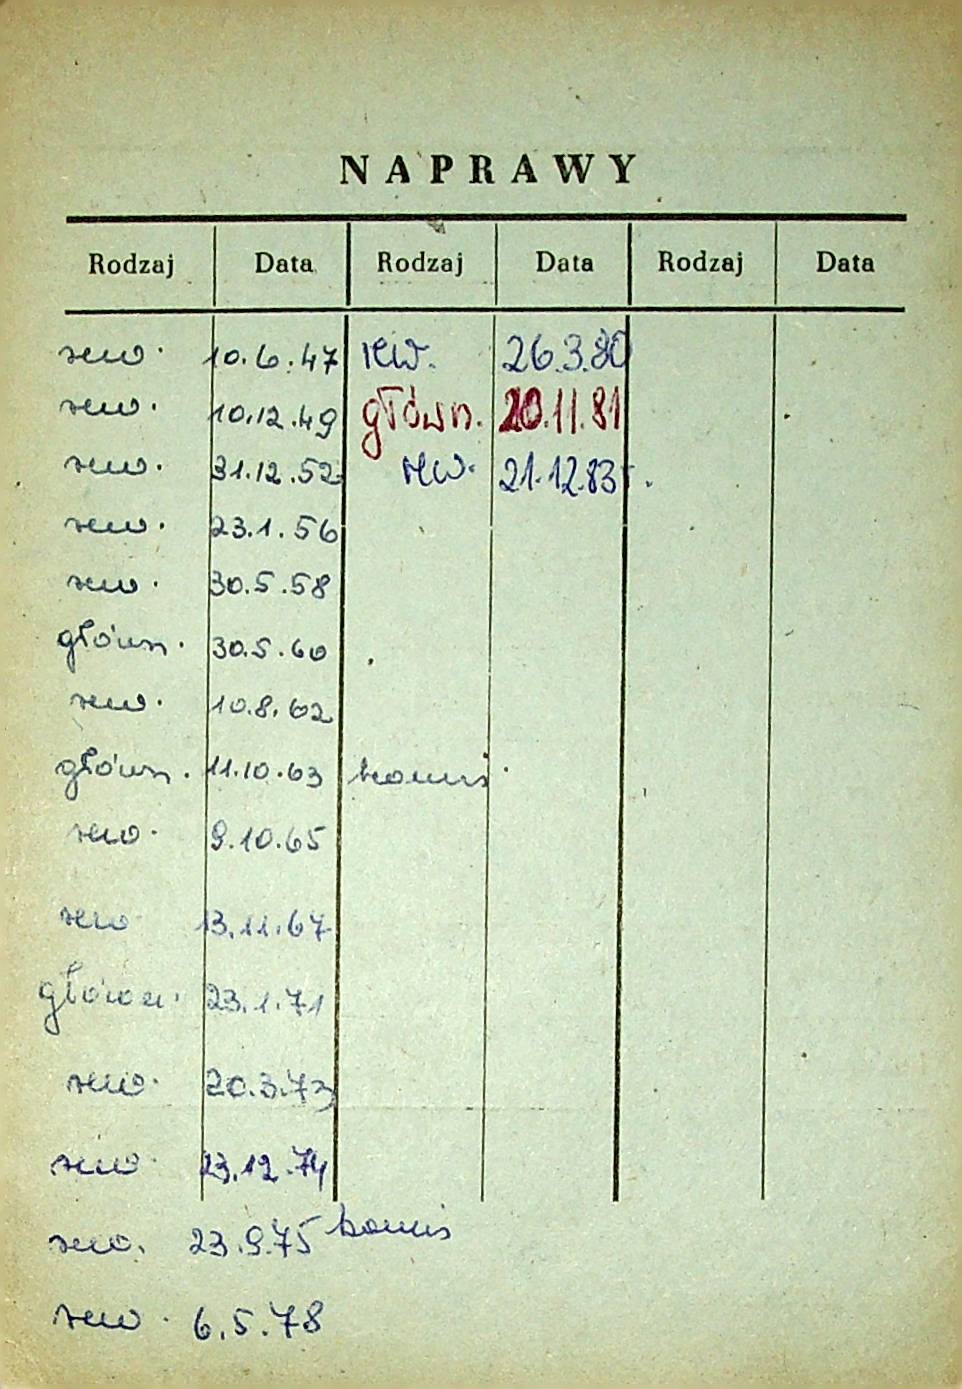 NAPRAWY
Rodzaj Data Rodzaj Data Rodzaj Data
rew. 10.6.47 rew. 26.3.80
rew. 10.12.49 główn. 20.11.81
rew. 31.12.52 rew. 21.12.83
rew. 23.1.56
rew. 30.5.58
główn. 30.5.60
rew. 10.8.62
główn. 11.10.63 komis.
rew. 9.10.65
rew 13.11.67
główn. 23.1.71
rew. 20.3.73
rew 23.12.74
rew. 23.9.75 komis
rew. 6.5.78